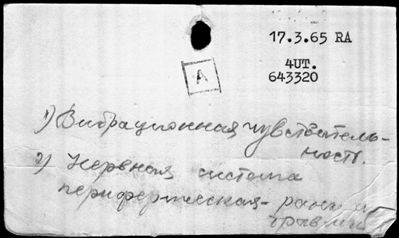 17.3.65 RA
4UT.
643320
A
1) Вибрационная чувствитель-
ность.
2) Нервная система
периферическая - раны и
травмы